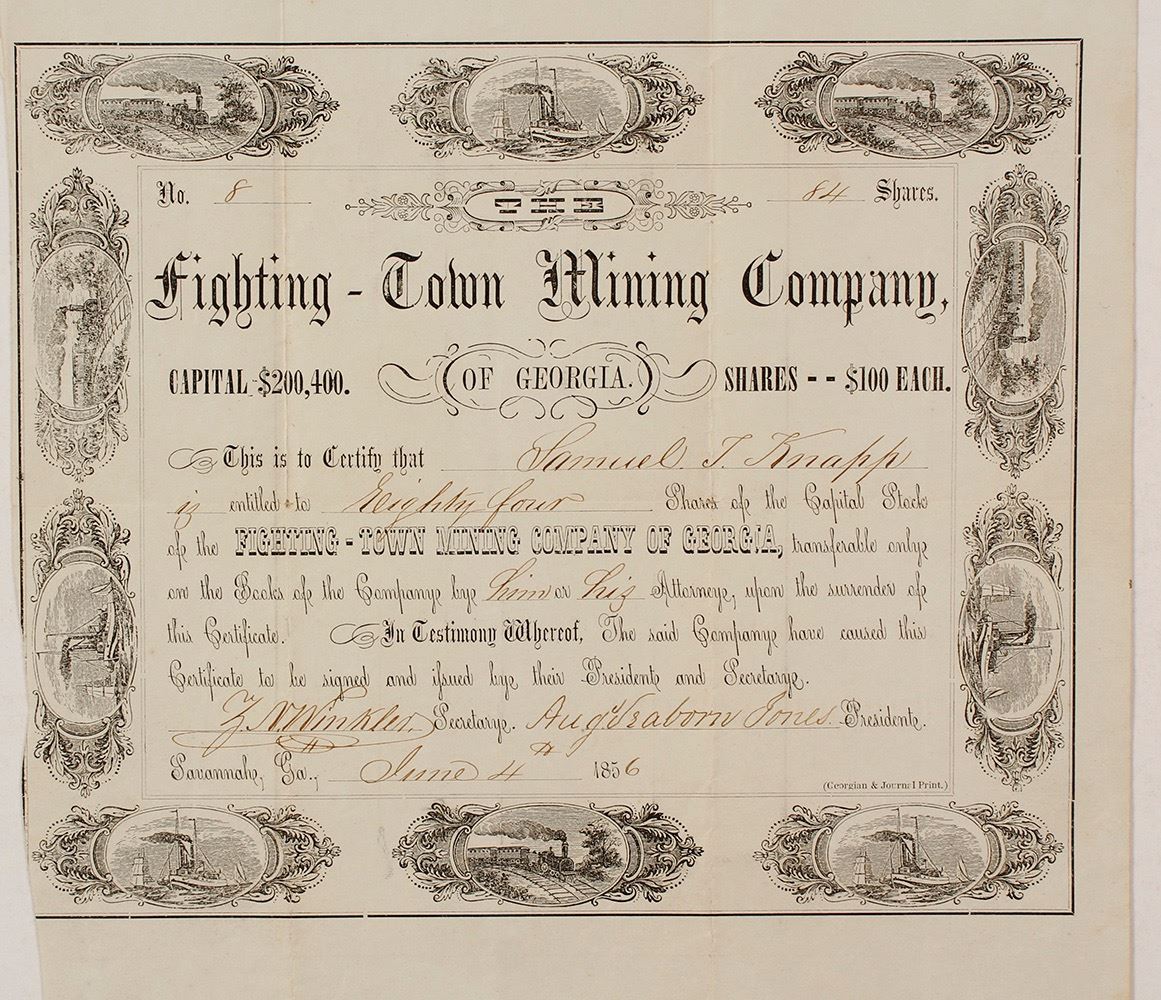 No. 8
84 Shares.
THE
Fighting - Town Mining Company,
CAPITAL - $200,400. OF GEORGIA. SHARES - - $100 EACH.
This is to Certify that Samuel. T. Knapp
is entitled to Eighty four Shares of the Capital Stock
of the FIGHTING - TOWN MINING COMPANY OF GEORGIA, transferable only
on the Books of the Company by him or his Attorney, upon the surrender of
this Certificate. In Testimony Whereof, The said Company have caused this
Certificate to be signed and issued by their President and Secretary.
Z. N Winkler. Secretary. Augs Seaborn Jones. President.
Savannah, Ga., June 4th 1856
(Georgian & Journal Print.)